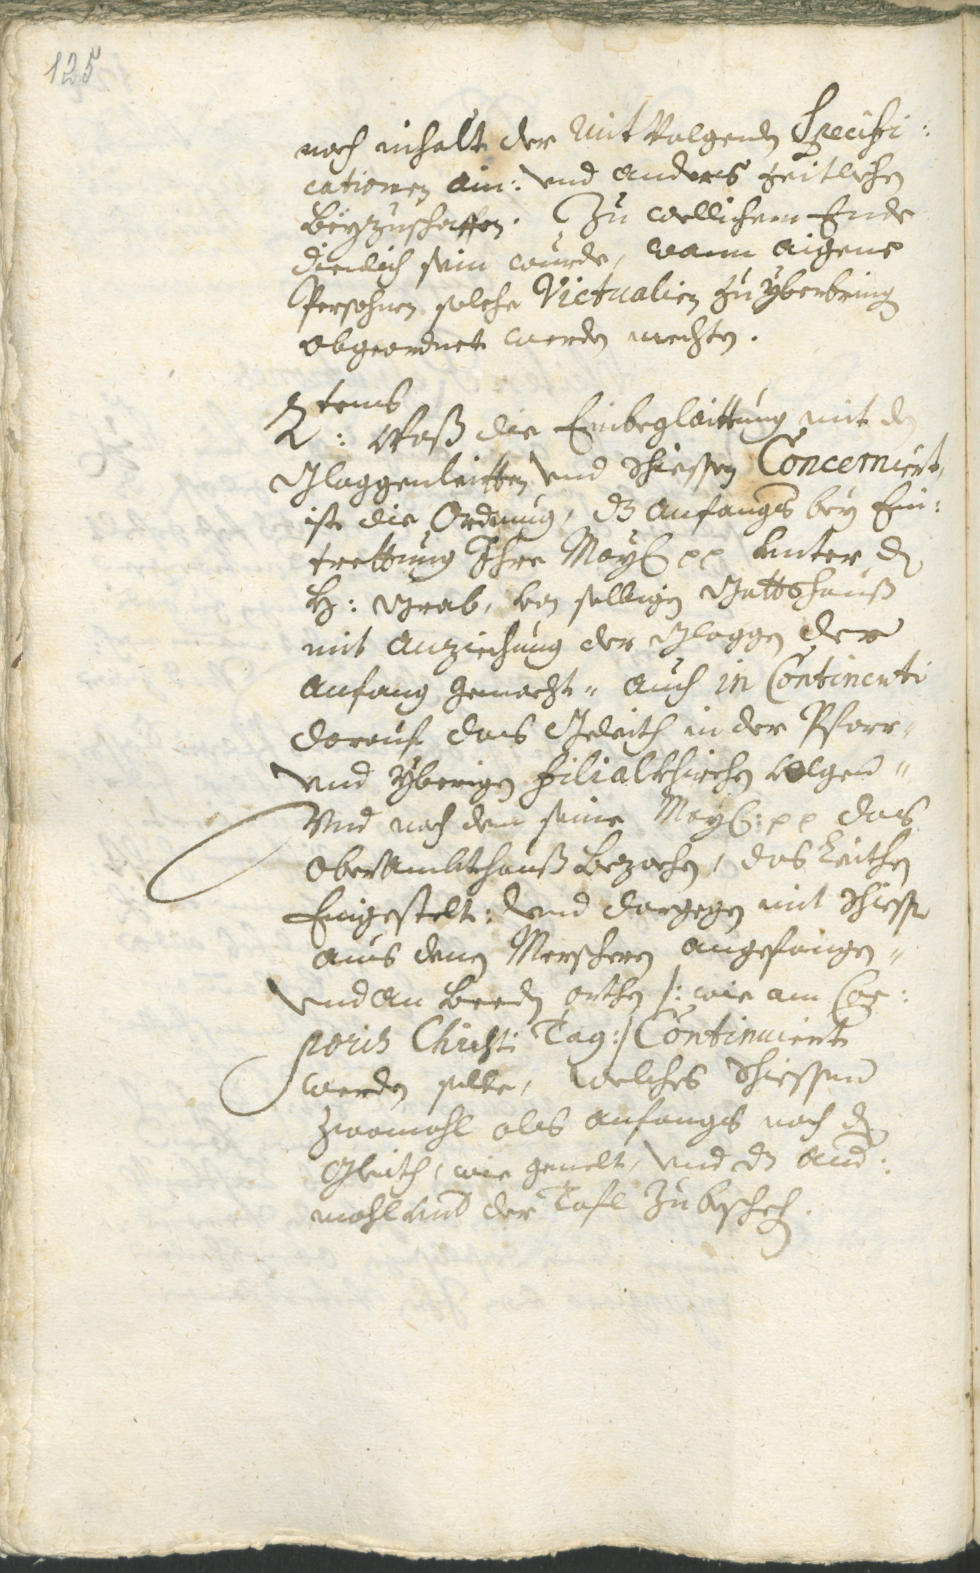 125
nach inhalt der mit volgenden Specifi:
cationen ain: vnd anders zeitlichen
beyzuschaffen. Zu wellichem Ende
dienlich sein wurde, wann aigene
Persohnen solche Victualien zu yberbring
abgeordnet werden mechten.
2tens
: Waß die Einbeglaittung mit dem
Gloggenleitten vnd schiessen Concerniert,
ist die Ordnung, dz anfangs bey Ein:
trettung Ihre May: pp vnter dz
H: Grab, von selbigen Gottshauß
mit Anziehung der Gloggen der
Anfang gemacht" auch in Continenti
darauf das Geleith in der Pfarr"
vnd yberigen filialkhirchen volgend"
Vnd nach dem seine May: pp das
Oberambthauß bezochen, das Leithen
Eingestelt: vnd dargegen mit schiessen
aus denen Merschern angefangen"
vnd an beeden orthen /: wie am Cor:
poris Christi Tag :/ Continuiert
werden solle, welches schiessend
zwaymahl als anfangs nach dem
Gleith, wie gemelt, vnd dz and:
mahl vnd der Tafl zu bescheh.